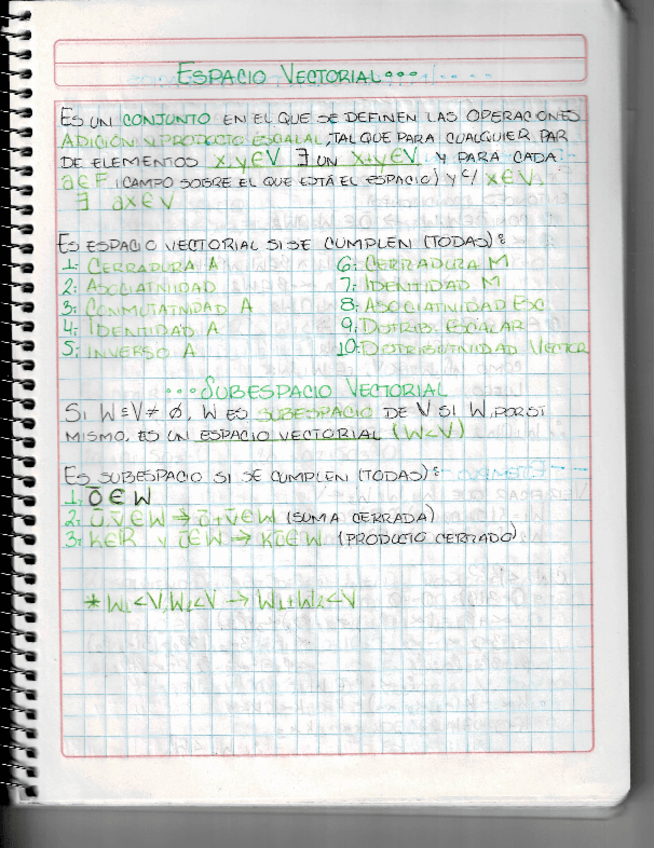 ESPACIO VECTORIAL...
ES UN CONJUNTO EN EL QUE SE DEFINEN LAS OPERACIONES
ADICIÓN Y PRODUCTO ESCALAR, TAL QUE PARA CUALQUIER PAR
DE ELEMENTOS x,y∈V ∃ UN x+y∈V Y PARA CADA
a∈F (CAMPO SOBRE EL QUE ESTÁ EL ESPACIO) Y C/ x∈V,
∃ ax∈V
ES ESPACIO VECTORIAL SI SE CUMPLEN (TODAS):
1: CERRADURA A
2: ASOCIATIVIDAD
3: CONMUTATIVIDAD A
4: IDENTIDAD A
5: INVERSO A
6: CERRADURA M
7: IDENTIDAD M
8: ASOCIATIVIDAD ESC.
9: DISTRIB. ESCALAR
10: DISTRIBUTIVIDAD VECTOR
...SUBESPACIO VECTORIAL
SI W⊆V≠ ∅, W ES SUBESPACIO DE V SI W, POR SÍ
MISMO, ES UN ESPACIO VECTORIAL (W<V)
ES SUBESPACIO SI SE CUMPLEN (TODAS):
1: 0̄∈W
2: ū,v̄∈W → ū+v̄∈W (SUMA CERRADA)
3: K∈R Y ū∈W → Kū∈W (PRODUCTO CERRADO)
* W₁<V, W₂<V → W₁+W₂<V